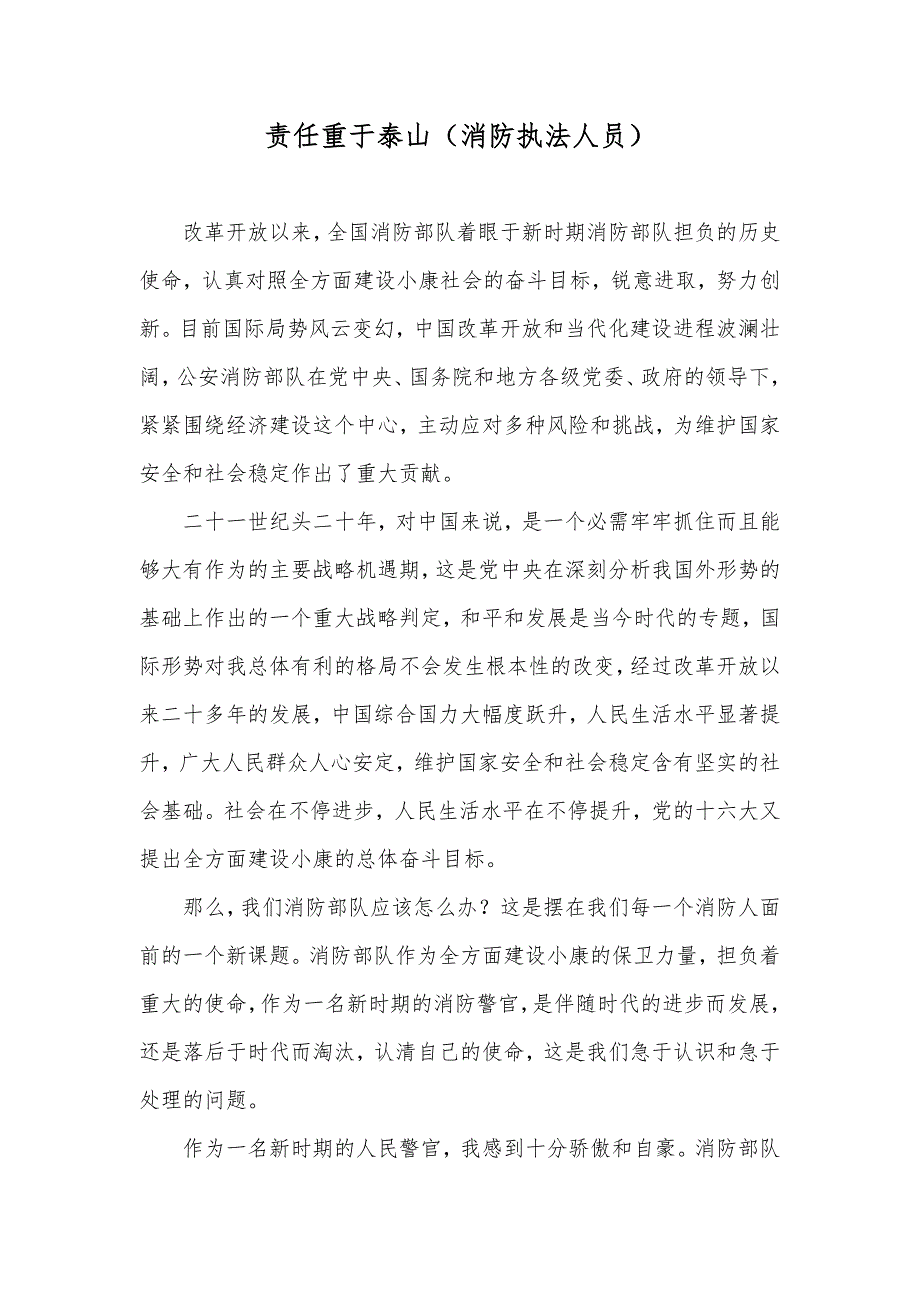 责任重于泰山（消防执法人员）
改革开放以来，全国消防部队着眼于新时期消防部队担负的历史
使命，认真对照全方面建设小康社会的奋斗目标，锐意进取，努力创
新。目前国际局势风云变幻，中国改革开放和当代化建设进程波澜壮
阔，公安消防部队在党中央、国务院和地方各级党委、政府的领导下，
紧紧围绕经济建设这个中心，主动应对多种风险和挑战，为维护国家
安全和社会稳定作出了重大贡献。
二十一世纪头二十年，对中国来说，是一个必需牢牢抓住而且能
够大有作为的主要战略机遇期，这是党中央在深刻分析我国外形势的
基础上作出的一个重大战略判定，和平和发展是当今时代的专题，国
际形势对我总体有利的格局不会发生根本性的改变，经过改革开放以
来二十多年的发展，中国综合国力大幅度跃升，人民生活水平显著提
升，广大人民群众人心安定，维护国家安全和社会稳定含有坚实的社
会基础。社会在不停进步，人民生活水平在不停提升，党的十六大又
提出全方面建设小康的总体奋斗目标。
那么，我们消防部队应该怎么办？这是摆在我们每一个消防人面
前的一个新课题。消防部队作为全方面建设小康的保卫力量，担负着
重大的使命，作为一名新时期的消防警官，是伴随时代的进步而发展，
还是落后于时代而淘汰，认清自己的使命，这是我们急于认识和急于
处理的问题。
作为一名新时期的人民警官，我感到十分骄傲和自豪。消防部队